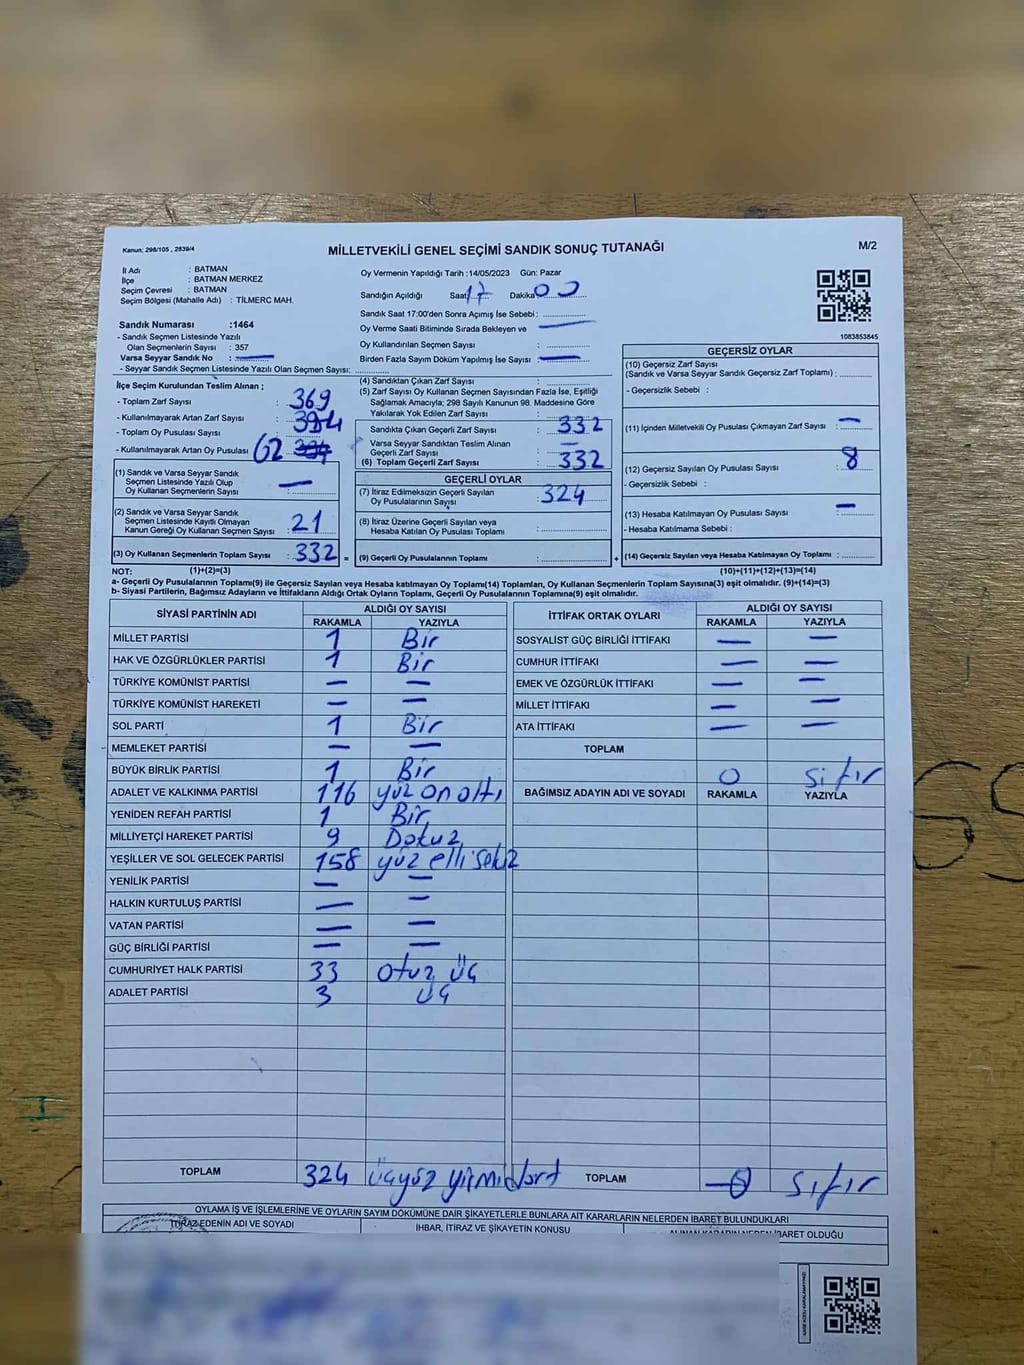 Kanun; 298/105 , 2839/4
MİLLETVEKİLİ GENEL SEÇİMİ SANDIK SONUÇ TUTANAĞI
M/2
İl Adı : BATMAN
İlçe : BATMAN MERKEZ
Seçim Çevresi : BATMAN
Seçim Bölgesi (Mahalle Adı) : TİLMERC MAH.
Oy Vermenin Yapıldığı Tarih :14/05/2023 Gün: Pazar
Sandığın Açıldığı Saat 17 Dakika 00
Sandık Saat 17:00'den Sonra Açımış İse Sebebi :
Oy Verme Saati Bitiminde Sırada Bekleyen ve —
Oy Kullandırılan Seçmen Sayısı :
Birden Fazla Sayım Döküm Yapılmış İse Sayısı : —
1083853845
Sandık Numarası :1464
- Sandık Seçmen Listesinde Yazılı
Olan Seçmenlerin Sayısı : 357
Varsa Seyyar Sandık No : —
- Seyyar Sandık Seçmen Listesinde Yazılı Olan Seçmen Sayısı:
İlçe Seçim Kurulundan Teslim Alınan ;
- Toplam Zarf Sayısı : 369
- Kullanılmayarak Artan Zarf Sayısı :
- Toplam Oy Pusulası Sayısı
- Kullanılmayarak Artan Oy Pusulası 62
(1) Sandık ve Varsa Seyyar Sandık
Seçmen Listesinde Yazılı Olup
Oy Kullanan Seçmenlerin Sayısı : —
(2) Sandık ve Varsa Seyyar Sandık
Seçmen Listesinde Kayıtlı Olmayan
Kanun Gereği Oy Kullanan Seçmen Sayısı : 21
(3) Oy Kullanan Seçmenlerin Toplam Sayısı : 332 =
(4) Sandıktan Çıkan Zarf Sayısı :
(5) Zarf Sayısı Oy Kullanan Seçmen Sayısından Fazla İse, Eşitliği
Sağlamak Amacıyla; 298 Sayılı Kanunun 98. Maddesine Göre
Yakılarak Yok Edilen Zarf Sayısı :
Sandıkta Çıkan Geçerli Zarf Sayısı : 332
Varsa Seyyar Sandıktan Teslim Alınan
Geçerli Zarf Sayısı : —
(6) Toplam Geçerli Zarf Sayısı : 332
GEÇERLİ OYLAR
(7) İtiraz Edilmeksizin Geçerli Sayılan
Oy Pusulasının Sayısı : 324
(8) İtiraz Üzerine Geçerli Sayılan veya
Hesaba Katılan Oy Pusulası Toplamı :
(9) Geçerli Oy Pusulalarının Toplamı : +
GEÇERSİZ OYLAR
(10) Geçersiz Zarf Sayısı
(Sandık ve Varsa Seyyar Sandık Geçersiz Zarf Toplamı) :
- Geçersizlik Sebebi :
(11) İçinden Milletvekili Oy Pusulası Çıkmayan Zarf Sayısı : —
(12) Geçersiz Sayılan Oy Pusulası Sayısı : 8
- Geçersizlik Sebebi :
(13) Hesaba Katılmayan Oy Pusulası Sayısı : —
- Hesaba Katılmama Sebebi :
(14) Geçersiz Sayılan veya Hesaba Katılmayan Oy Toplamı :
NOT: (1)+(2)=(3) (10)+(11)+(12)+(13)=(14)
a- Geçerli Oy Pusulalarının Toplamı(9) ile Geçersiz Sayılan veya Hesaba katılmayan Oy Toplamı(14) Toplamları, Oy Kullanan Seçmenlerin Toplam Sayısına(3) eşit olmalıdır. (9)+(14)=(3)
b- Siyasi Partilerin, Bağımsız Adayların ve İttifakların Aldığı Ortak Oyların Toplamı, Geçerli Oy Pusulalarının Toplamına(9) eşit olmalıdır.
SİYASİ PARTİNİN ADI ALDIĞI OY SAYISI
RAKAMLA YAZIYLA
MİLLET PARTİSİ 1 Bir
HAK VE ÖZGÜRLÜKLER PARTİSİ 1 Bir
TÜRKİYE KOMÜNİST PARTİSİ — —
TÜRKİYE KOMÜNİST HAREKETİ — —
SOL PARTİ 1 Bir
MEMLEKET PARTİSİ — —
BÜYÜK BİRLİK PARTİSİ 1 Bir
ADALET VE KALKINMA PARTİSİ 116 yüz on altı
YENİDEN REFAH PARTİSİ 1 Bir
MİLLİYETÇİ HAREKET PARTİSİ 9 Dokuz
YEŞİLLER VE SOL GELECEK PARTİSİ 158 yüz elli sekiz
YENİLİK PARTİSİ — —
HALKIN KURTULUŞ PARTİSİ — —
VATAN PARTİSİ — —
GÜÇ BİRLİĞİ PARTİSİ — —
CUMHURİYET HALK PARTİSİ 33 otuz üç
ADALET PARTİSİ 3 üç
TOPLAM 324 üçyüz yirmi dört
İTTİFAK ORTAK OYLARI ALDIĞI OY SAYISI
RAKAMLA YAZIYLA
SOSYALİST GÜÇ BİRLİĞİ İTTİFAKI — —
CUMHUR İTTİFAKI — —
EMEK VE ÖZGÜRLÜK İTTİFAKI — —
MİLLET İTTİFAKI — —
ATA İTTİFAKI — —
TOPLAM
0 sıfır
BAĞIMSIZ ADAYIN ADI VE SOYADI RAKAMLA YAZIYLA
TOPLAM 0 sıfır
OYLAMA İŞ VE İŞLEMLERİNE VE OYLARIN SAYIM DÖKÜMÜNE DAİR ŞİKAYETLERLE BUNLARA AİT KARARLARIN NELERDEN İBARET BULUNDUKLARI
İTİRAZ EDENİN ADI VE SOYADI İHBAR, İTİRAZ VE ŞİKAYETİN KONUSU ALINAN KARARIN NEDEN İBARET OLDUĞU